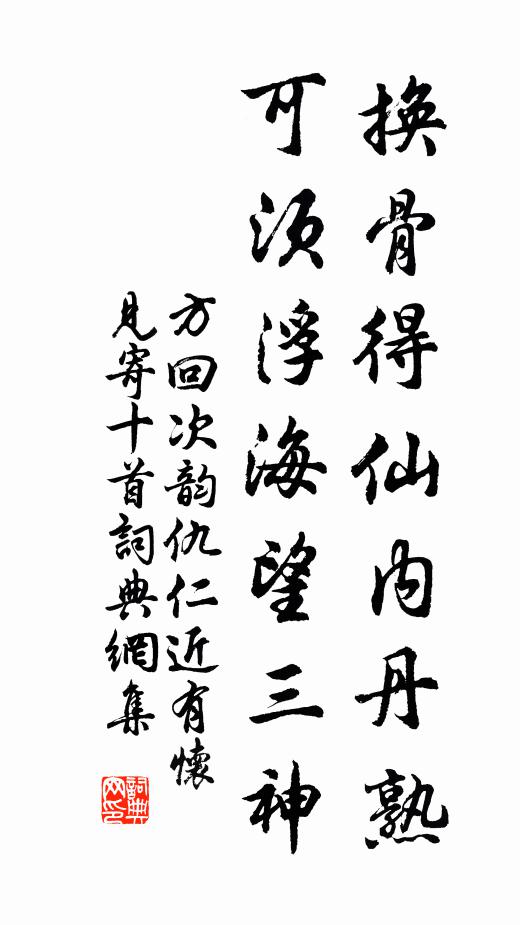 換骨得仙内丹熟
可須浮海望三神
方回次韵仇仁近有懷
見寄十首詞典網集
詞典网印